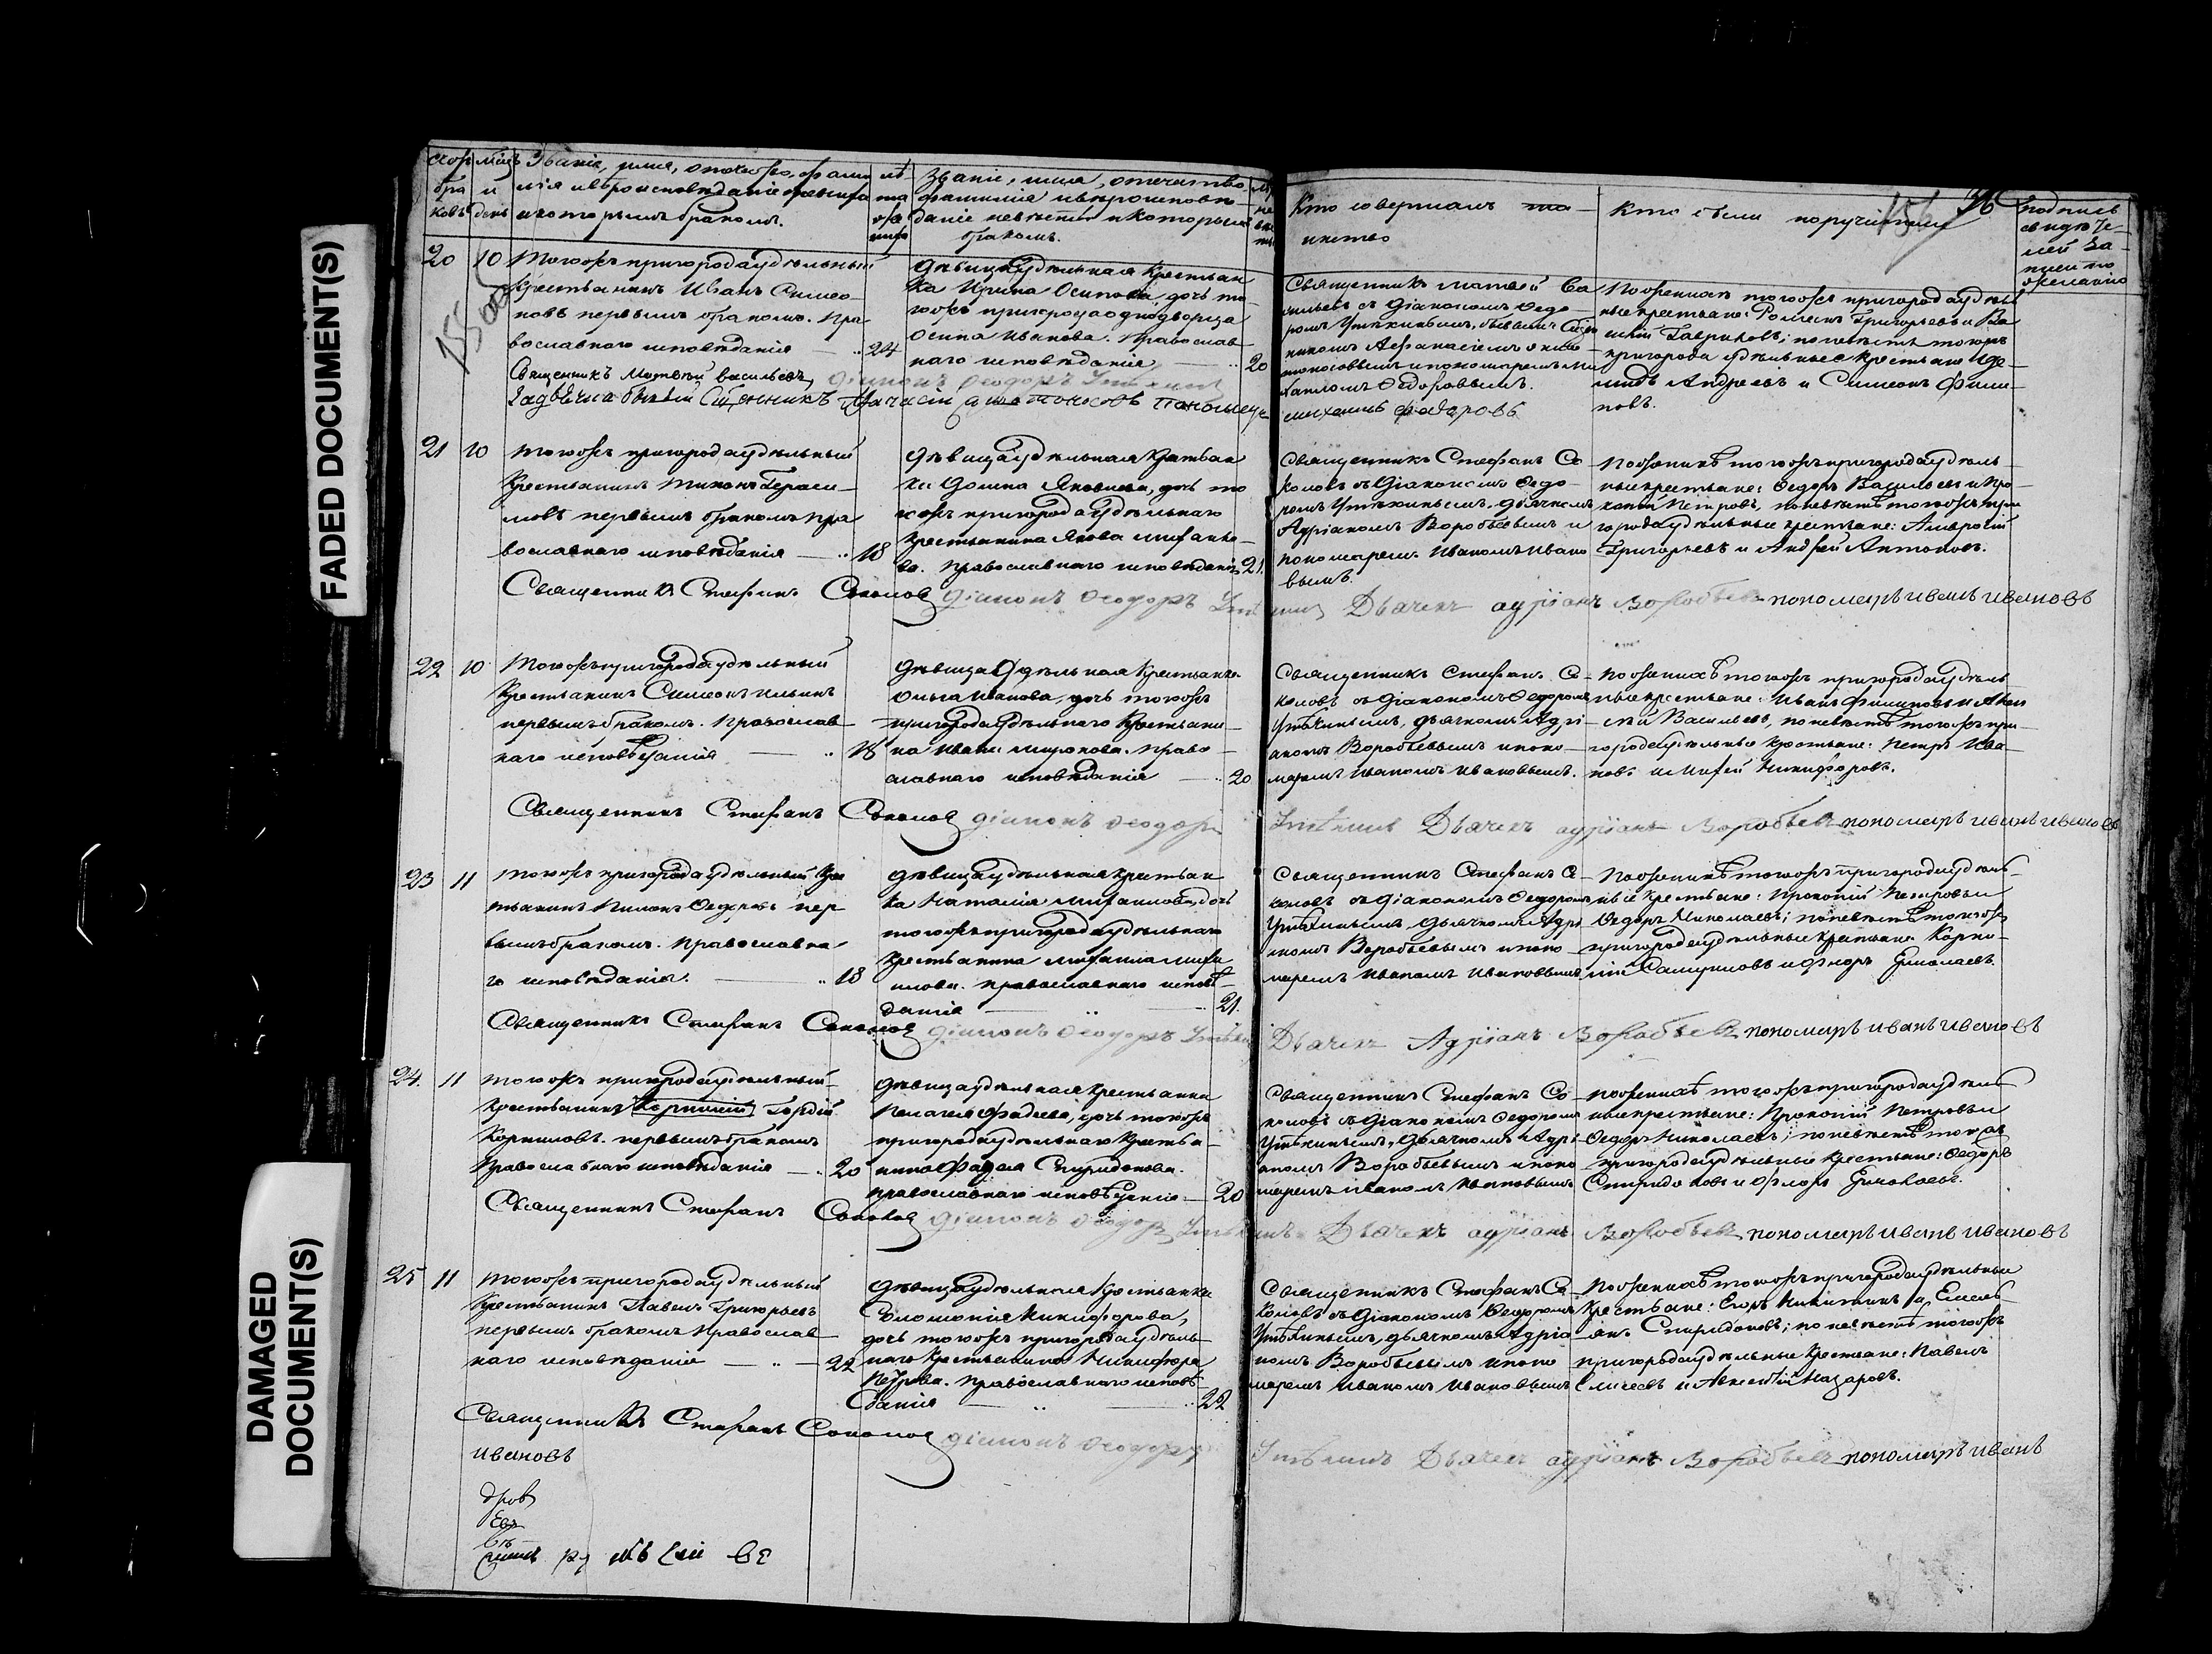 FADED DOCUMENT(S)
DAMAGED
DOCUMENT(S)
Званіе, имя, отчество, фами
лія и вѣроисповѣданіе жениха
и которымъ бракомъ.
лѣ
та
Званіе, имя, отечество
фамилія и вѣроисповѣ-
даніе невѣсты и которымъ
бракомъ.
Кто совершалъ та-
инство
Кто были поручители
36
подпись
свидѣте-
лей за-
писи по
желанію
20 10 Тогожъ пригорода удѣльный
крестьянинъ Иванъ Симео-
новъ первымъ бракомъ. Пра-
вославнаго исповѣданія 24
Дѣвица удѣльная крестьян
ка Ирина Осипова, дочь то-
гожъ пригорода однодворца
Осипа Иванова. Православ
наго исповѣданія 20
Священникъ Матвей Ва
сильевъ съ діакономъ Ѳедо-
ромъ Утѣхинымъ, бывшимъ
михаилъ федоровъ
По женихѣ тогожъ пригорода удѣль
ные крестьяне: Романъ Григорьевъ и Ва
силій Гавриловъ; по невѣстѣ тогожъ
пригорода удѣльные крестьяне
Андреевъ и Симеонъ Фили-
повъ.
Священникъ Матвѣй васильевъ діаконъ Ѳеодоръ Утѣхинъ
21 10 Тогожъ пригорода удѣльный
крестьянинъ Тихонъ Гераси-
мовъ первымъ бракомъ пра
вославнаго исповѣданія 18
Дѣвица удѣльная крестьян
ка Домна Яковлева, дочь то
гожъ пригорода удѣльнаго
крестьянина Якова
ва. православнаго исповѣданія 21.
Священникъ Стефанъ Со
коловъ съ діакономъ Ѳедо-
ромъ Утѣхинымъ, дьячкомъ
Адріаномъ Воробьевымъ и
пономаремъ Иваномъ Ивано
вымъ.
По женихѣ тогожъ пригорода удѣль-
ные крестьяне: Ѳедоръ Васильевъ и Про-
копій Петровъ, по невѣстѣ тогожъ при
города удѣльные крестьяне: Амвросій
Григорьевъ и Андрей Антоновъ.
Священникъ Стефанъ Соколов діаконъ Ѳеодоръ Утѣхинъ Дьячекъ адріанъ Воробьевъ пономаръ иванъ ивановъ
22 10 Тогожъ пригорода удѣльный
крестьянинъ Симеонъ Ильинъ
первымъ бракомъ. Православ
наго исповѣданія 18
Дѣвица удѣльная крестьянка
Ольга Иванова, дочь тогожъ
пригорода удѣльнаго крестьяни-
на Ивана Миронова. Право-
славнаго исповѣданія 20
Священникъ Стефанъ Со-
коловъ съ діакономъ Ѳедоромъ
Утѣхинымъ, дьячкомъ Адрі
аномъ Воробьевымъ и поно-
маремъ Иваномъ Ивановымъ.
По женихѣ тогожъ пригорода удѣль
ные крестьяне: Иванъ Филиповъ и Алек
сѣй Васильевъ, по невѣстѣ тогожъ при-
города удѣльные крестьяне: Петръ Ива-
новъ и Никифоровъ.
Священникъ Стефанъ Соколов діаконъ Ѳеодоръ Утѣхинъ Дьячекъ адріанъ Воробьевъ пономаръ иванъ ивановъ
23 11 Тогожъ пригорода удѣльный крес
тьянинъ Пименъ Ѳедоровъ пер
вымъ бракомъ. Православна
го исповѣданія. 18
Дѣвица удѣльная крестьян
ка Наталія Михаилова, дочь
тогожъ пригорода удѣльнаго
крестьянина Михаила Миха
илова. православнаго исповѣ-
данія 21.
Священникъ Стефанъ Со-
коловъ съ діакономъ Ѳедоромъ
Утѣхинымъ дьячкомъ Адрі
аномъ Воробьевымъ и поно
маремъ Иваномъ Ивановымъ
По женихѣ тогожъ пригорода удѣль-
ные крестьяне: Прокопій Петровъ и
Ѳедоръ Николаевъ; по невѣстѣ тогожъ
пригорода удѣльные крестьяне: Корни-
лій Самуиловъ и Флоръ Ермолаевъ.
Священникъ Стефанъ Соколов діаконъ Ѳеодоръ Утѣхинъ Дьячекъ Адріанъ Воробьевъ пономаръ иванъ ивановъ
24. 11 Тогожъ пригорода удѣльный
крестьянинъ Корнилій Гордѣй
Корниловъ. первымъ бракомъ
Православнаго исповѣданія 20
Дѣвица удѣльная крестьянка
Пелагея Фадеева, дочь тогожъ
пригорода удѣльнаго крестья-
нина Фадея Спиридонова.
православнаго исповѣданія 20
Священникъ Стефанъ Со-
коловъ съ діакономъ Ѳедоромъ
Утѣхинымъ, дьячкомъ Адрі-
аномъ Воробьевымъ и поно
маремъ Иваномъ Ивановымъ
По женихѣ тогожъ пригорода удѣль
ные крестьяне: Прокопій Петровъ и
Ѳедоръ Николаевъ; по невѣстѣ тогожъ
пригорода удѣльные крестьяне: Ѳедоръ
Спиридоновъ и Флоръ Ермолаевъ.
Священникъ Стефанъ Соколов діаконъ Ѳеодоръ Утѣхинъ Дьячекъ адріанъ Воробьевъ пономаръ иванъ ивановъ
25 11 Тогожъ пригорода удѣльный
крестьянинъ Павелъ Григорьевъ
первымъ бракомъ Православ
наго исповѣданія 22
Дѣвица удѣльная крестьянка
Соломонія Никифорова,
дочь тогожъ пригорода удѣль-
наго крестьянина Никифора
Петрова. Православнаго исповѣ-
данія 22
Священникъ Стефанъ Со-
коловъ съ діакономъ Ѳедоромъ
Утѣхинымъ, дьячкомъ Адріа
номъ Воробьевымъ и поно
маремъ Иваномъ Ивановымъ
По женихѣ тогожъ пригорода удѣльные
крестьяне: Егоръ Никитинъ и Емель-
янъ Спиридоновъ; по невѣстѣ тогожъ
пригорода удѣльные крестьяне: Павелъ
Елисеевъ и Назаровъ.
Священникъ Стефанъ Соколов діаконъ Ѳеодоръ Утѣхинъ Дьячекъ адріанъ Воробьевъ пономаръ иванъ
ивановъ